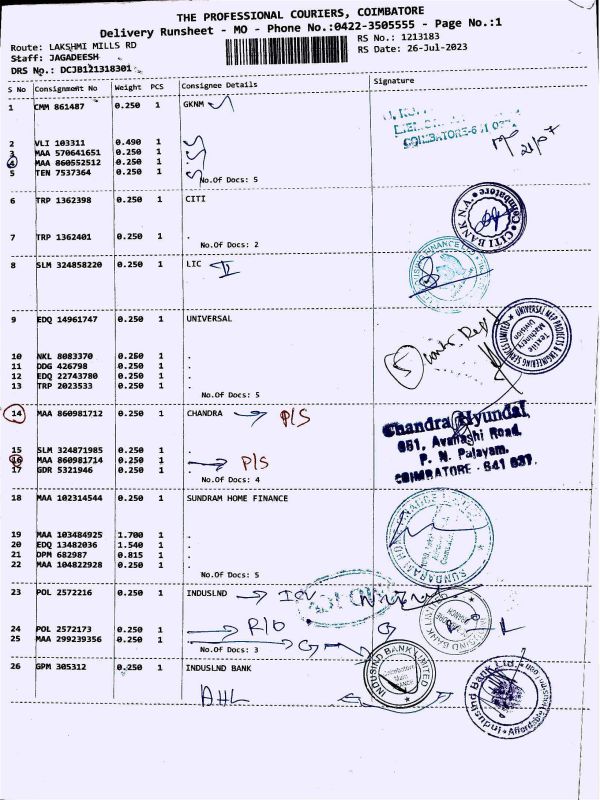 THE PROFESSIONAL COURIERS, COIMBATORE
Delivery Runsheet - MO - Phone No.:0422-3505555 - Page No.:1
Route: LAKSHMI MILLS RD
RS No.: 1213183
Staff: JAGADEESH
RS Date: 26-Jul-2023
DRS No.: DCJB121318301
S No Consignment No Weight PCS Consignee Details Signature
1 CMM 861487 0.250 1 GKNM
2 VLI 103311 0.490 1 .
3 MAA 570641651 0.250 1 .
4 MAA 860552512 0.250 1 .
5 TEN 7537364 0.250 1 .
No.Of Docs: 5
COIMBATORE-641 037
6 TRP 1362398 0.250 1 CITI
7 TRP 1362401 0.250 1 .
No.Of Docs: 2
CITI BANK N.A. Coimbatore
8 SLM 324858220 0.250 1 LIC
9 EDQ 14961747 0.250 1 UNIVERSAL
10 NKL 8083370 0.250 1 .
11 DDG 426798 0.250 1 .
12 EDQ 22743780 0.250 1 .
13 TRP 2023533 0.250 1 .
No.Of Docs: 5
UNIVERSAL MEP PROJECTS & ENGINEERING SERVICES LIMITED
Textile Machinery Division
5
14 MAA 860981712 0.250 1 CHANDRA P/S
15 SLM 324871985 0.250 1 .
16 MAA 860981714 0.250 1 . P/S
17 GDR 5321946 0.250 1 .
No.Of Docs: 4
Chandra Hyundai,
681, Avanashi Road,
P. N. Palayam,
COIMBATORE - 641 037.
18 MAA 102314544 0.250 1 SUNDRAM HOME FINANCE
19 MAA 103484925 1.700 1 .
20 EDQ 13482036 1.540 1 .
21 DPM 682987 0.815 1 .
22 MAA 104822928 0.250 1 .
No.Of Docs: 5
23 POL 2572216 0.250 1 INDUSLND
24 POL 2572173 0.250 1 .
25 MAA 299239356 0.250 1 .
No.Of Docs: 3
26 GPM 305312 0.250 1 INDUSLND BANK
INDUSIND BANK LIMITED